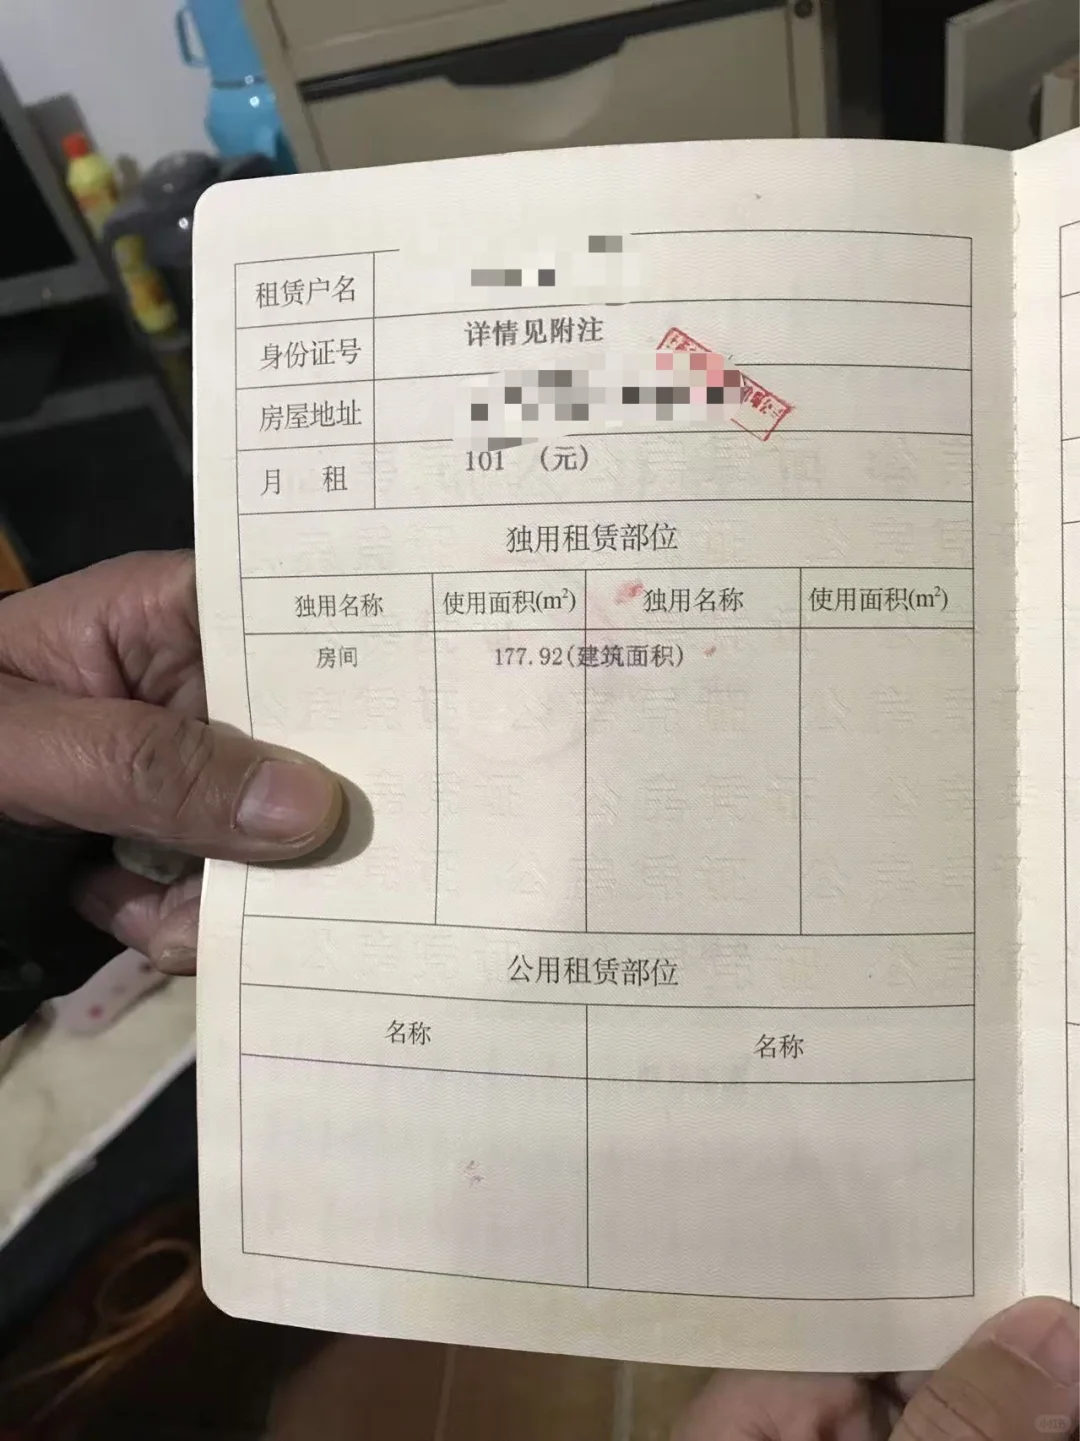 租赁户名
身份证号 详情见附注
房屋地址
月 租 101 (元)
独用租赁部位
独用名称 使用面积(m²) 独用名称 使用面积(m²)
房间 177.92(建筑面积)
公用租赁部位
名称 名称